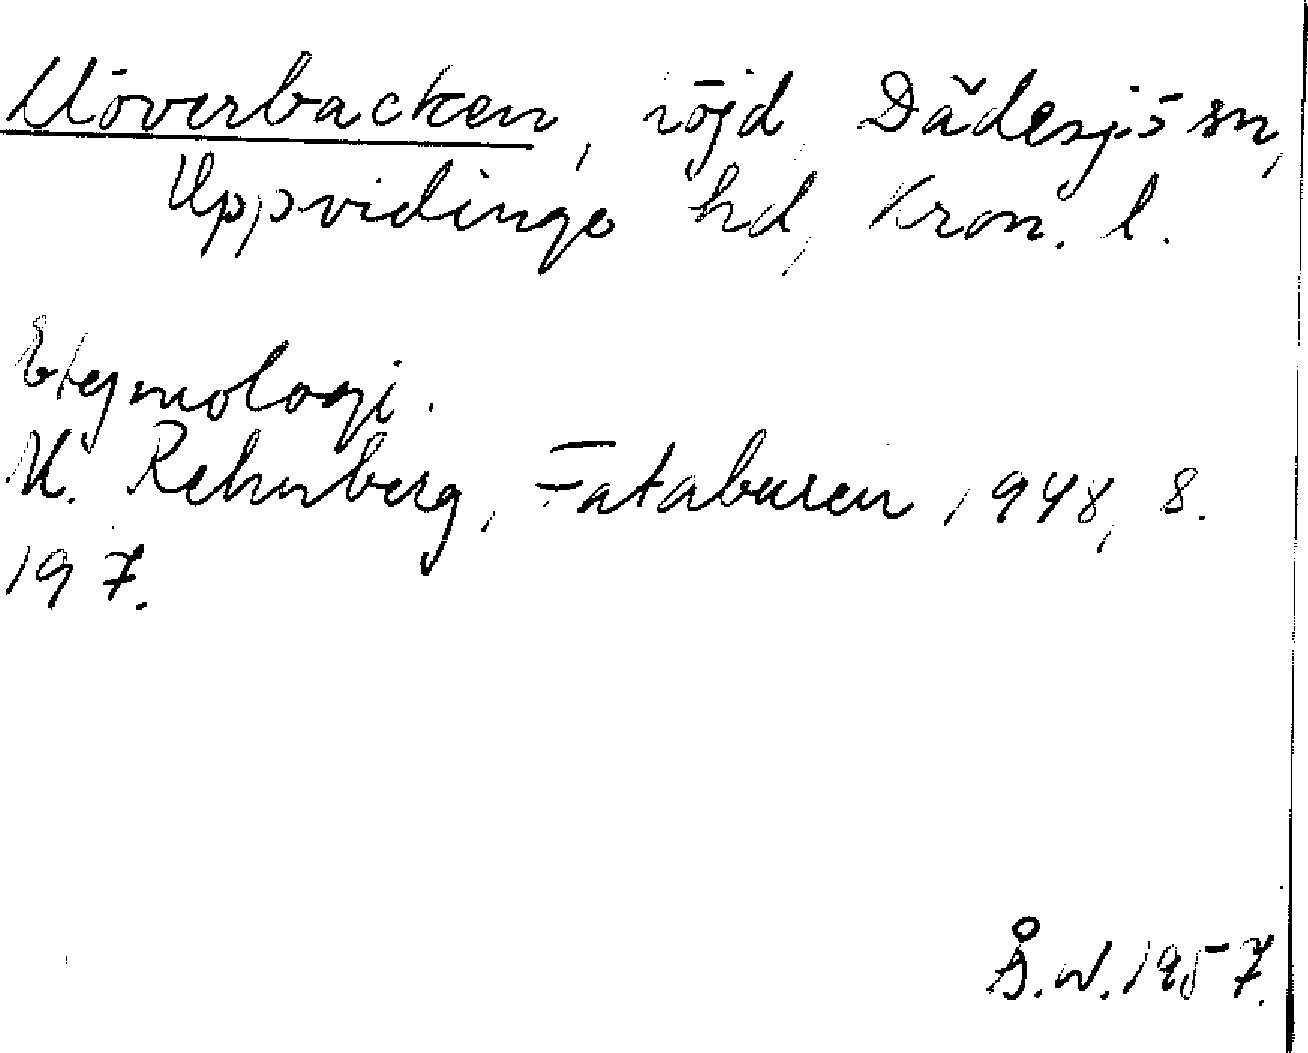 Klöverbacken, röjd, Dädesjö sn,
Uppvidinge hd, Kron. l.
Etymologi.
M. Rehnberg, Fataburen 1948, s.
197.
Å.W. 1957.